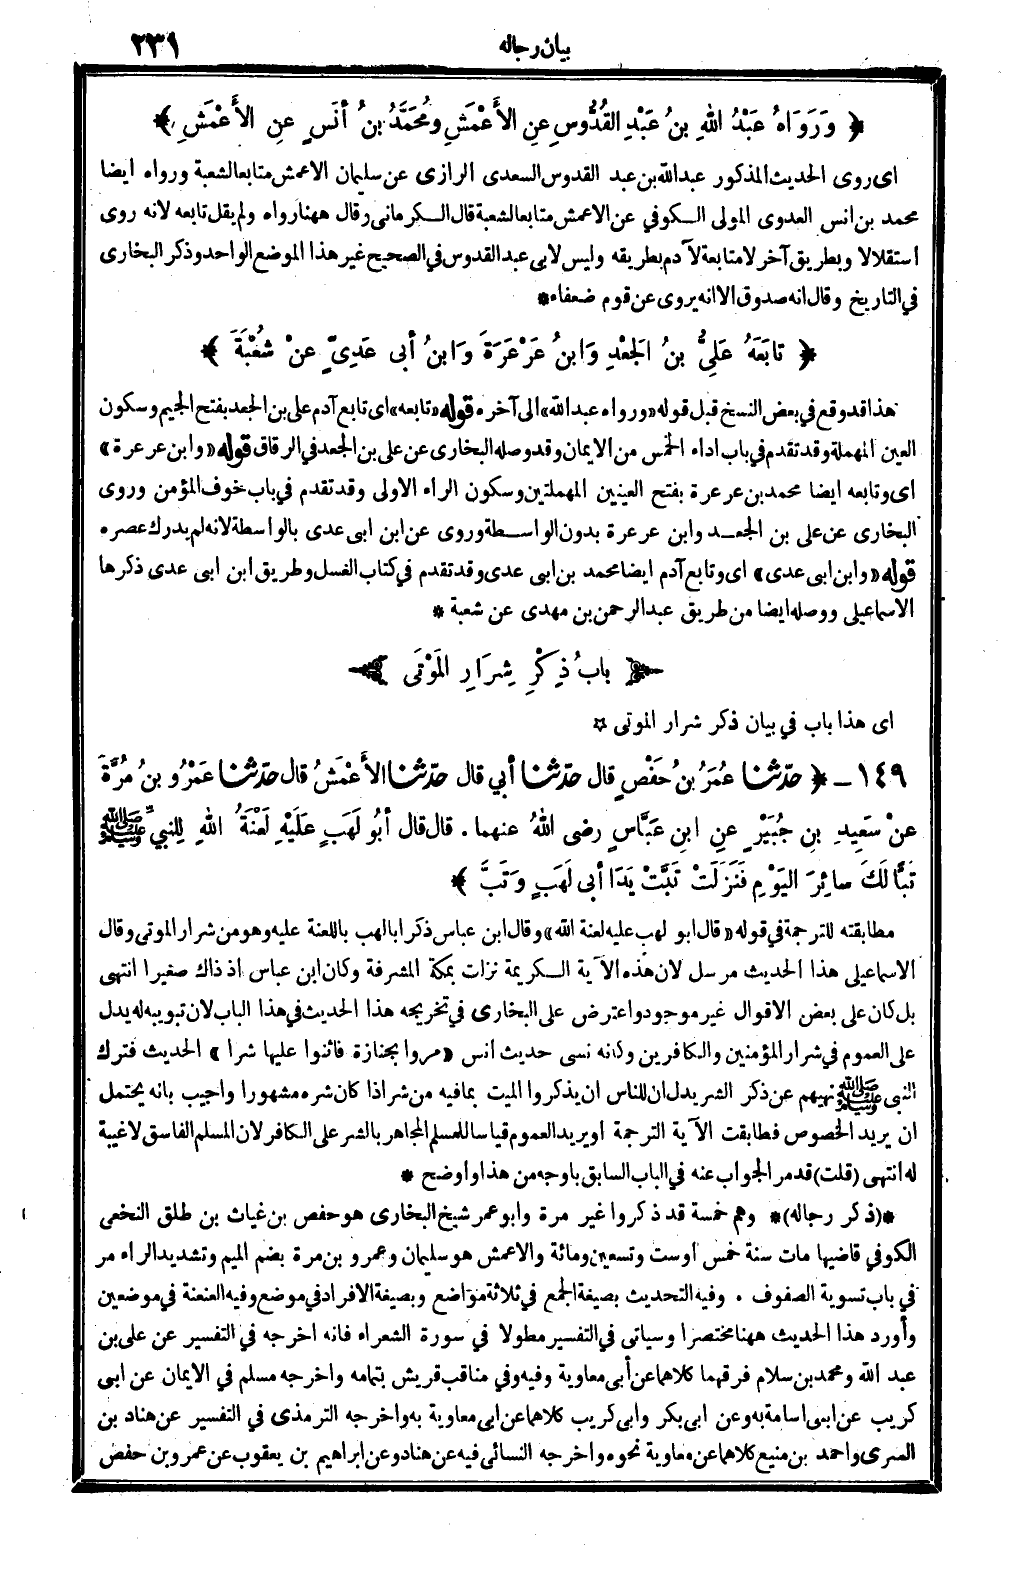 بيان رجاله ٢٣١
﴿ وَرَوَاهُ عَبْدُ اللهِ بنُ عَبْدِ القُدُّوسِ عنِ الأَعْمَشِ ومُحَمَّدُ بنُ أنَسٍ عنِ الأَعْمَشِ ﴾
اى روى الحديث المذكور عبدالله بن عبد القدوس السعدى الرازى عن سليمان الاعمش متابعا لشعبة ورواه ايضا
محمد بن انس العدوى المولى الكوفي عن الاعمش متابعا لشعبة قال الكرمانى رقال ههنا رواه ولم يقل تابعه لانه روى
استقلالا وبطريق آخر لا متابعة لآدم بطريقه وليس لابى عبد القدوس في الصحيح غير هذا الموضع الواحد وذكر البخارى
في التاريخ وقال انه صدوق الا انه يروى عن قوم ضعفاء*
﴿ تابَعَهُ عَلِيُّ بنُ الجَعْدِ وَابنُ عَرْعَرَةَ وَابنُ أبى عَدِىٍّ عنْ شُعْبَةَ ﴾
هذا قد وقع في بعض النسخ قبل قوله «ورواه عبدالله» الى آخره قوله «تابعه» اى تابع آدم على بن الجعد بفتح الجيم وسكون
العين المهملة وقد تقدم في باب اداء الخمس من الايمان وقد وصله البخارى عن على بن الجعد في الرقاق قوله «وابن عرعرة»
اى وتابعه ايضا محمد بن عرعرة بفتح العينين المهملتين وسكون الراء الاولى وقد تقدم في باب خوف المؤمن وروى
البخارى عن على بن الجعد وابن عرعرة بدون الواسطة وروى عن ابن ابى عدى بالواسطة لانه لم يدرك عصره
قوله «وابن ابى عدى» اى وتابع آدم ايضا محمد بن ابى عدى وقد تقدم في كتاب الغسل وطريق ابن ابى عدى ذكرها
الاسماعيلى ووصله ايضا من طريق عبدالرحمن بن مهدى عن شعبة *
﴿ بابُ ذِكْرِ شِرَارِ المَوْتَى ﴾
اى هذا باب في بيان ذكر شرار الموتى ☆
١٤٩ ـ ﴿ حدّثنا عُمَرُ بنُ حَفْصٍ قال حدّثنا أبي قال حدّثنا الأَعْمَشُ قال حدّثنا عَمْرُو بنُ مُرَّةَ
عنْ سَعِيدِ بنِ جُبَيْرٍ عنِ ابنِ عَبَّاسٍ رضى اللهُ عنهما . قال قال أبُو لَهَبٍ عَلَيْهِ لَعْنَةُ اللهِ لِلنبيِّ ﷺ
تَبًّا لَكَ سائِرَ اليَوْمِ فَنَزَلَتْ تَبَّتْ يَدَا أبى لَهَبٍ وَتَبَّ ﴾
مطابقته للترجمة في قوله «قال ابو لهب عليه لعنة الله» وقال ابن عباس ذكر ابا لهب باللعنة عليه وهو من شرار الموتى وقال
الاسماعيلى هذا الحديث مرسل لان هذه الآية الكريمة نزلت بمكة المشرفة وكان ابن عباس اذ ذاك صغيرا انتهى
بل كان على بعض الاقوال غير موجود واعترض على البخارى في تخريجه هذا الحديث في هذا الباب لان تبويبه له يدل
على العموم في شرار المؤمنين والكافرين وكانه نسى حديث انس «مروا بجنازة فاثنوا عليها شرا» الحديث فترك
النبى ﷺ نهيهم عن ذكر الشر يدل ان للناس ان يذكروا الميت بما فيه من شر اذا كان شره مشهورا واجيب بانه يحتمل
ان يريد الخصوص فطابقت الآية الترجمة او يريد العموم قياسا للمسلم المجاهر بالشر على الكافر لان المسلم الفاسق لا غيبة
له انتهى (قلت) قد مر الجواب عنه في الباب السابق باوجه من هذا واوضح *
*(ذكر رجاله)* وهم خمسة قد ذكروا غير مرة وابو عمر شيخ البخارى هو حفص بن غياث بن طلق النخعى
الكوفي قاضيها مات سنة خمس اوست وتسعين ومائة والاعمش هو سليمان وعمرو بن مرة بضم الميم وتشديد الراء مر
في باب تسوية الصفوف . وفيه التحديث بصيغة الجمع في ثلاثة مواضع وبصيغة الافراد في موضع وفيه العنعنة في موضعين
وأورد هذا الحديث ههنا مختصرا وسياتى في التفسير مطولا في سورة الشعراء فانه اخرجه في التفسير عن على بن
عبد الله ومحمد بن سلام فرقهما كلاهما عن أبى معاوية وفيه وفي مناقب قريش بتمامه واخرجه مسلم في الايمان عن ابى
كريب عن ابى اسامة به وعن ابى بكر وابى كريب كلاهما عن ابى معاوية به واخرجه الترمذى في التفسير عن هناد بن
السرى واحمد بن منيع كلاهما عن معاوية نحوه واخرجه النسائى فيه عن هناد وعن ابراهيم بن يعقوب عن عمرو بن حفص